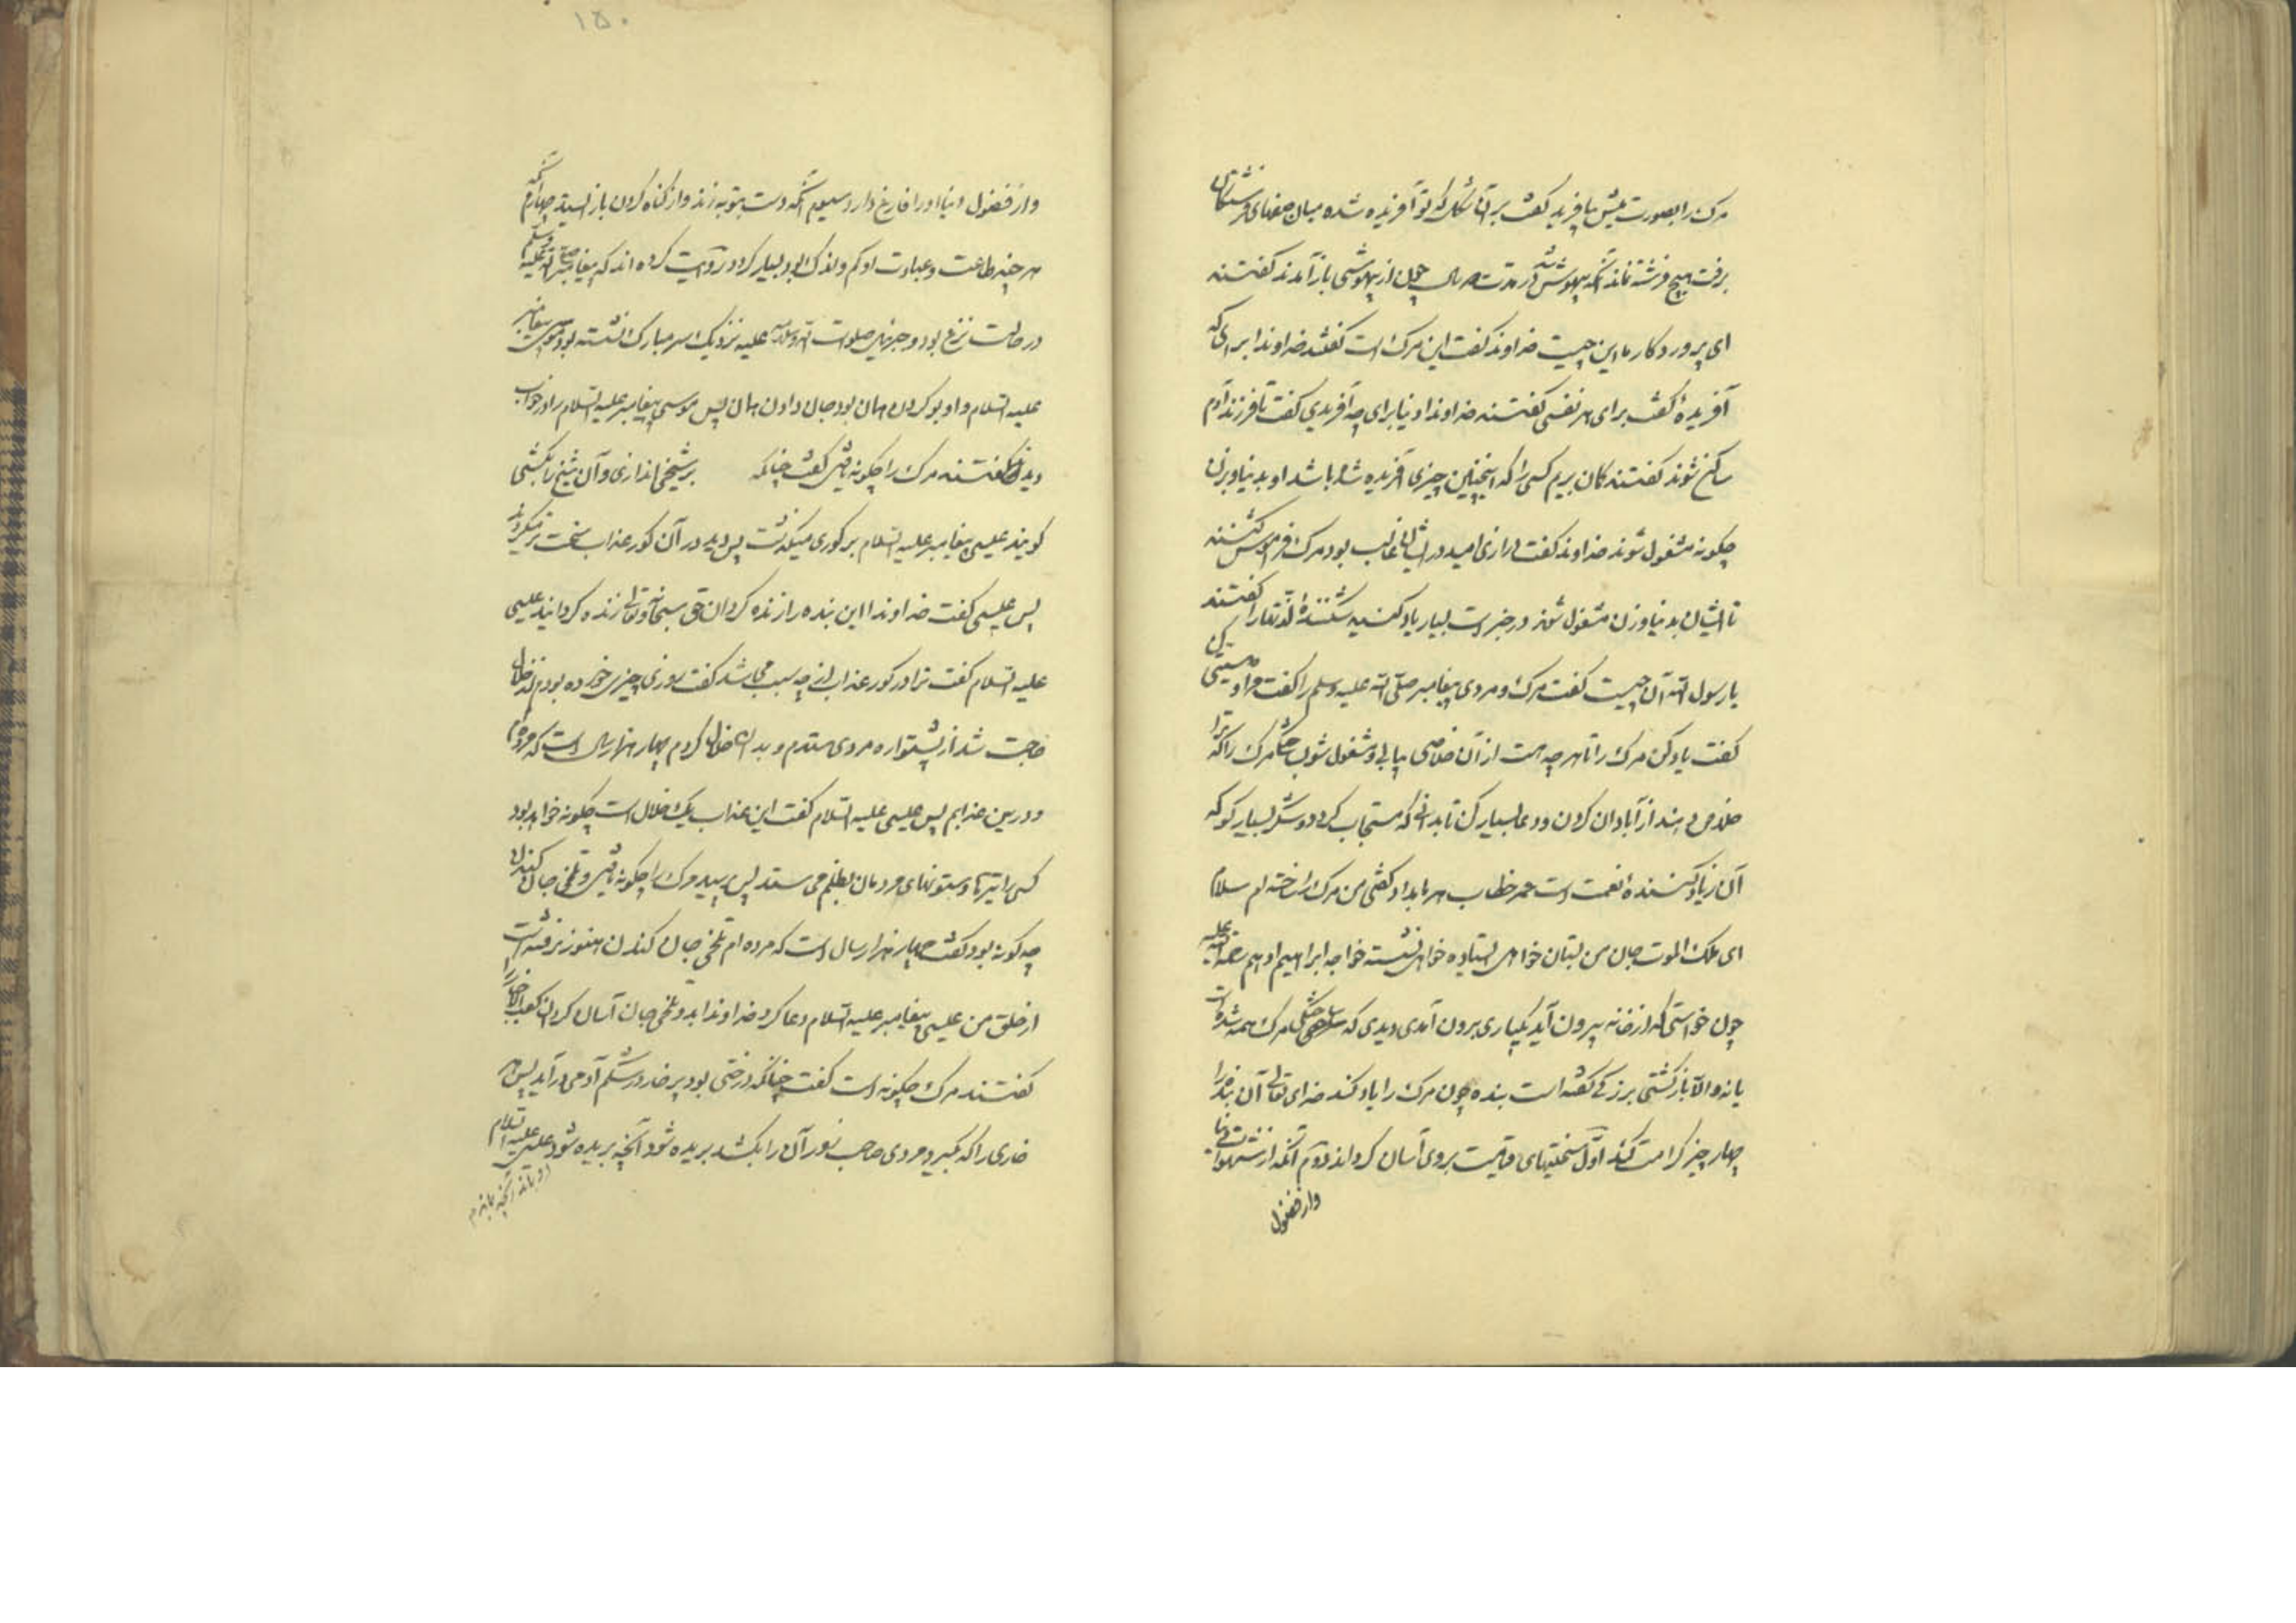 مرک را بصورت میش بیافرید کفت بر آن شکل که تو آفریده شده میان صفهای فرشتکان
برفت هیچ فرشته نماند آنکه بیهوش شد در مدت سال چون از بیهوشی باز آمدند کفتند
ای پروردکار ما این چیست خداوند کفت این مرک است کفتند خداوندا برای که
آفریدهٔ کفت برای هر نفسی کفتند خداوندا دنیا برای چه آفریدی کفت تا فرزند آدم
ساکن شوند کفتند کمان بریم کسی را که اینچنین چیزی آفریده شده باشد او بدنیا و بزن
چکونه مشغول شوند خداوند کفت درازی امید در ایشان غالب بود مرک فراموش کنند
تا ایشان بدنیا و زن مشغول شوند در خبر است بسیار یاد کنید شکنندهٔ لذتها را کفتند
یا رسول الله آن چیست کفت مرک و مردی پیغامبر صلی الله علیه وسلم را کفت مرا وصیتی کن
کفت یاد کن مرک را تا هر چه هست از آن خلاصی یابی و مشغول شو مرک را که ترا
خلاص دهند از آبادان کردن و دعا بسیار کن تا بدانی که مستجاب کردد و شکر بسیار کو که
آن زیاد کنندهٔ نعمت است عمر خطاب هر بامداد کفتی من مرک را ساخته ام سلام
ای ملک الموت جان من بستان خواهی استاده خواهی نشسته خواجه ابراهیم ادهم رحمة الله علیه
چون خواستی که از خانه بیرون آید یکباری برون آمدی دیدی که ساختکی مرک همه شده است
یا نه والا باز کشتی بزرکی کفته است بنده چون مرک را یاد کند خدای تعالی آن بنده را
چهار چیز کرامت کند اول سختیهای قیامت بر وی آسان کرداند دوم آنکه از شهوات دنیا
واز فضول
۱۵۰
واز فضول دنیا او را فارغ دارد سیوم آنکه دست بتوبه زند و از کناه کردن باز ایستد چهارم آنکه
هر چند طاعت و عبادت او کم و اندک بود بسیار کردد روایت کرده اند که پیغامبر صلی الله علیه وسلم
در حالت نزع بود و جبرئیل صلوات الله وسلامه علیه نزدیک سر مبارک نشسته بود موسی پیغامبر
علیه السلام و او بو کردن همان بود جان دادن همان پس موسی پیغامبر علیه السلام را در خواب
دیدند کفتند مرک را چکونه یافتی کفت چنانکه بر سیخی اندازی و آن سیخ را بکشی
کویند عیسی پیغامبر علیه السلام بر کوری میکذشت پس دید در آن کور عذاب سخت
پس عیسی کفت خداوندا این بنده را زنده کردان حق سبحانه و تعالی زنده کردانید عیسی
علیه السلام کفت ترا در کور عذاب از چه سبب می باشد کفت روزی چیزی خورده بودم
حاجت شد از پشتواره مردی ستدم و بدان خلال کردم چهار هزار سال است که مرده ام
و درین عذابم پس عیسی علیه السلام کفت این عذاب یک خلال است چکونه خواهد بود
کسی را تیرها و ستونهای مردمان بظلم می ستد پس پرسید مرک را چکونه یافتی و تلخی جان کندن
چه کونه بود کفت چهار هزار سال است که مرده ام تلخی جان کندن هنوز نرفته است
از خلق من عیسی پیغامبر علیه السلام دعا کرد خداوندا بدو تلخی جان آسان کردان کعب الاحبار را
کفتند مرک چکونه است کفت چنانکه درختی بود پر خار در شکم آدمی در آید پس هر
خاری را که بکیرد مردی صاحب زور آن را بکشد بریده شود آنچه بریده شود عیسی علیه السلام